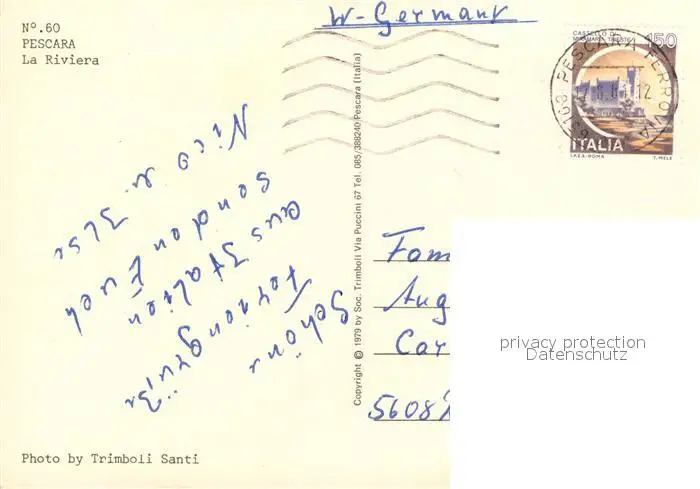 N°.60
PESCARA
La Riviera
W-Germany
CASTELLO DI
MIRAMARE · TRIESTE
150
PESCARA FERROVIA
12
ITALIA
I.P.Z.S.-ROMA
T. MELE
Schöne
Feriengrüße
aus Italien
senden Euch
Nico u. Ilse
Copyright © 1979 by Soc. Trimboli Via Puccini 67 Tel. 085/388240 Pescara (Italia)
Fam
Aug
Car
5608
privacy protection
Datenschutz
Photo by Trimboli Santi